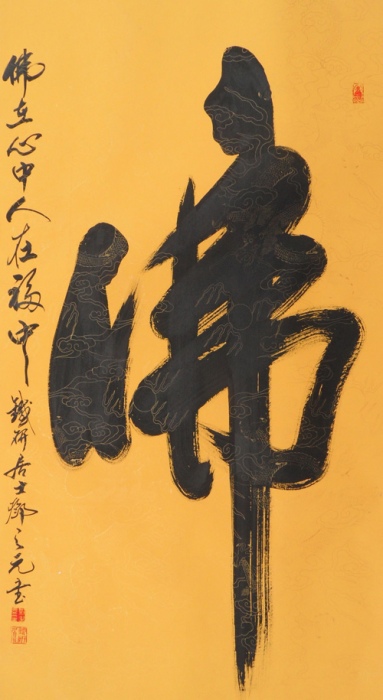 佛
佛在心中人在福中
铁研居士邓之元書